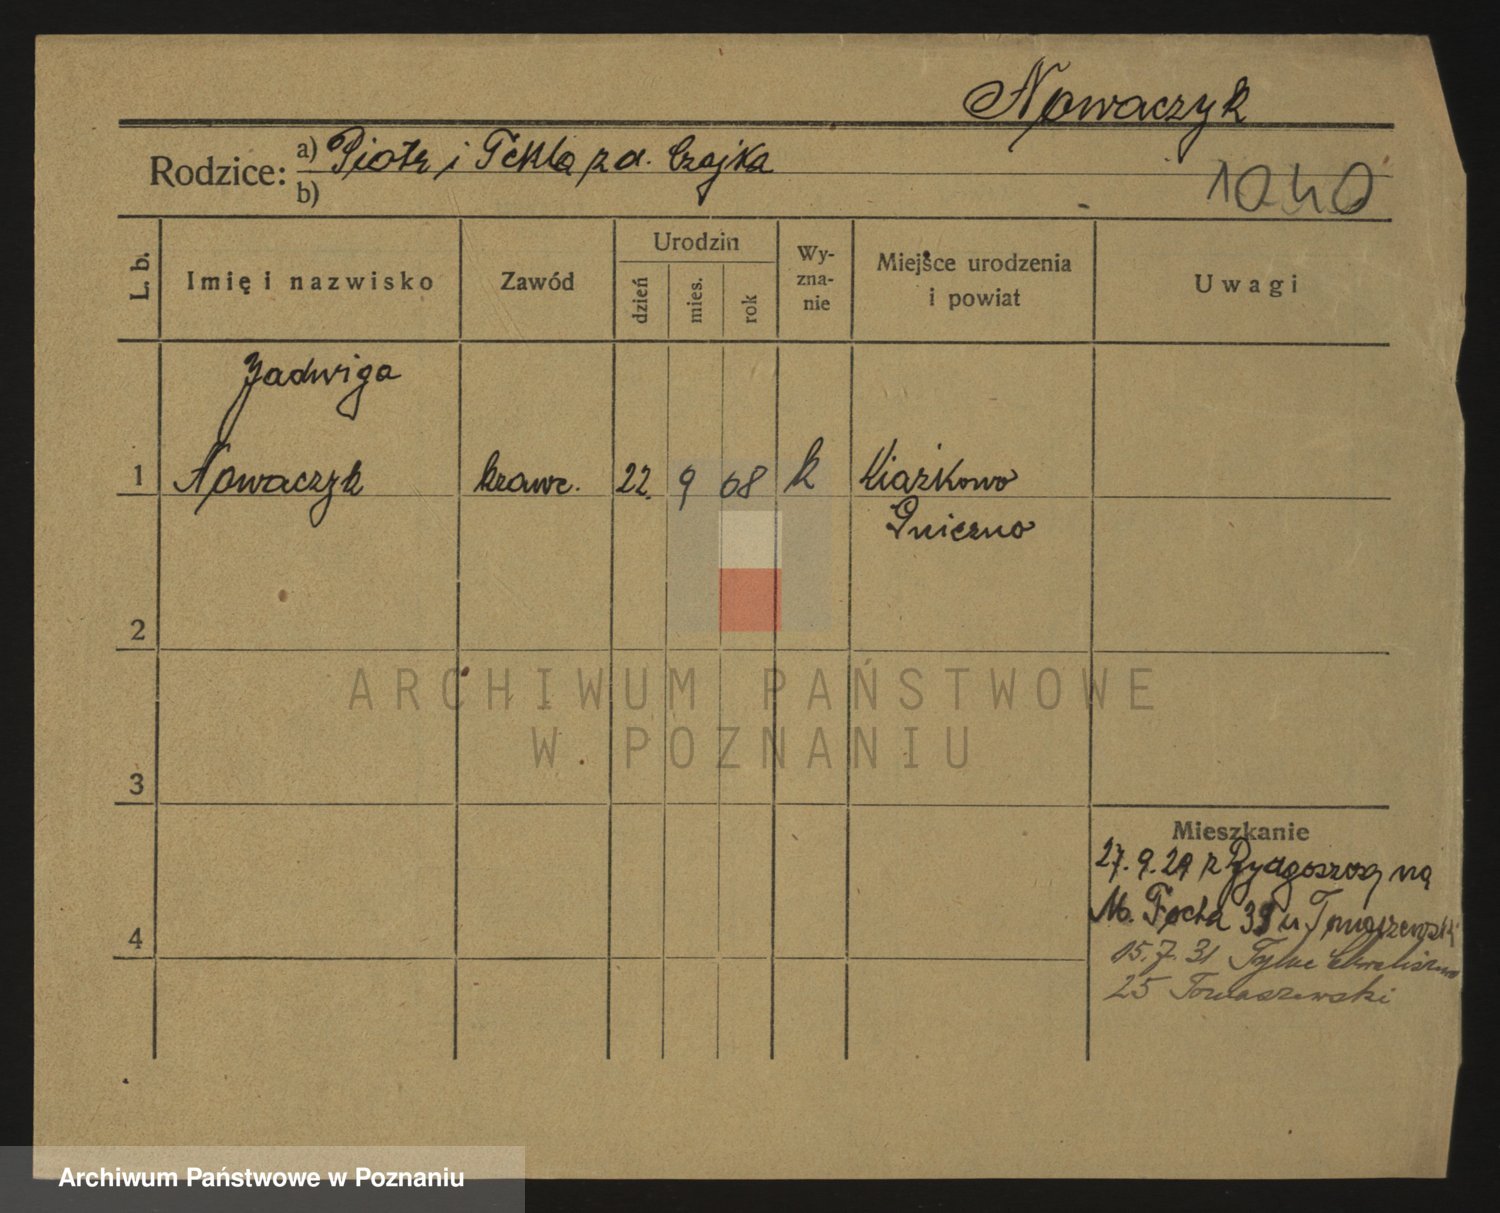 Nowaczyk
Rodzice: a) Piotr i Tekla z d. Czajka
b)
1040
L. b.
Imię i nazwisko
Zawód
Urodzin
dzień
mies.
rok
Wy-
zna-
nie
Miejsce urodzenia
i powiat
Uwagi
Jadwiga
1 Nowaczyk krawc. 22. 9 08 k Kiążkowo
Gniezno
2
3
4
ARCHIWUM PAŃSTWOWE
W POZNANIU
Mieszkanie
27.9.29 z Bydgoszczy na
M. Focha 39 u Tomaszewski
15.7.31 Tylne Chwaliszewo
25 Tomaszewski
Archiwum Państwowe w Poznaniu